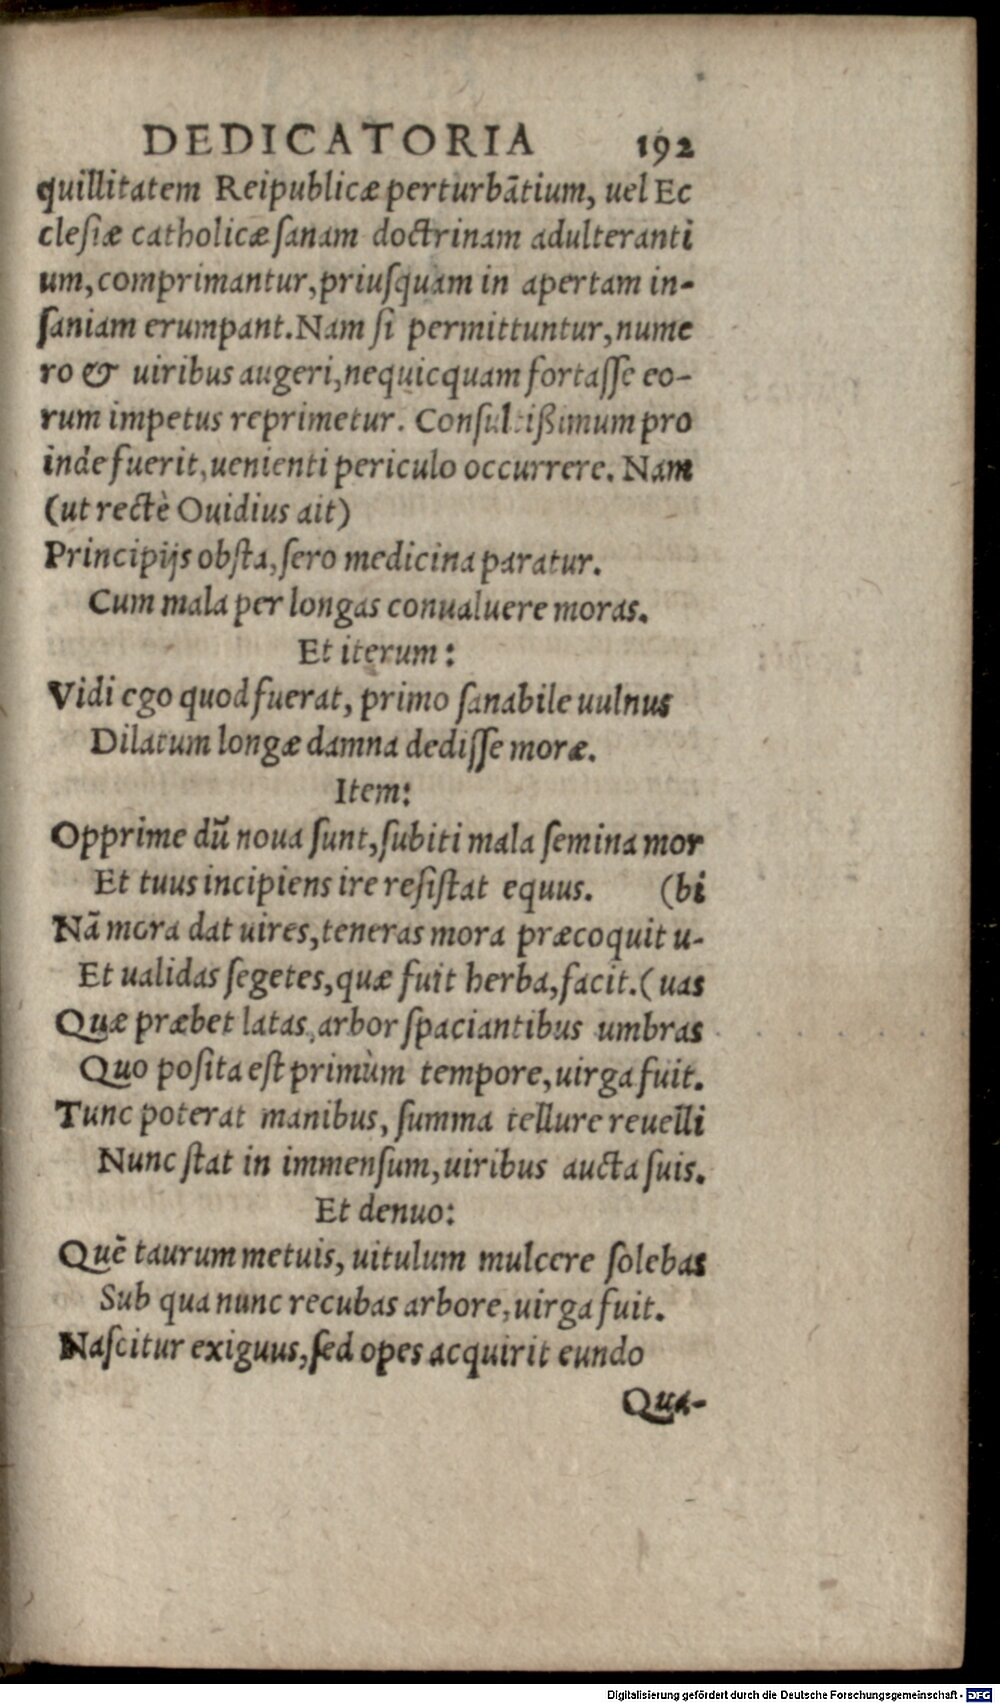 DEDICATORIA 192
quillitatem Reipublicæ perturbātium, uel Ec
clesiæ catholicæ sanam doctrinam adulteranti
um, comprimantur, priusquam in apertam in-
saniam erumpant. Nam si permittuntur, nume
ro & uiribus augeri, nequicquam fortasse eo-
rum impetus reprimetur. Consultißimum pro
inde fuerit, uenienti periculo occurrere. Nam
(ut rectè Ouidius ait)
Principijs obsta, sero medicina paratur.
Cum mala per longas conualuere moras.
Et iterum:
Vidi ego quod fuerat, primo sanabile uulnus
Dilatum longæ damna dedisse moræ.
Item:
Opprime dū noua sunt, subiti mala semina mor
Et tuus incipiens ire resistat equus. (bi
Nā mora dat uires, teneras mora præcoquit u-
Et ualidas segetes, quæ fuit herba, facit. (uas
Quæ præbet latas, arbor spaciantibus umbras
Quo posita est primùm tempore, uirga fuit.
Tunc poterat manibus, summa tellure reuelli
Nunc stat in immensum, uiribus aucta suis.
Et denuo:
Quē taurum metuis, uitulum mulcere solebas
Sub qua nunc recubas arbore, uirga fuit.
Nascitur exiguus, sed opes acquirit eundo
Qua-
Digitalisierung gefördert durch die Deutsche Forschungsgemeinschaft - DFG